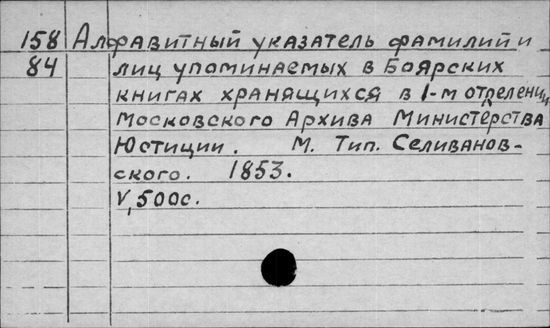 158 Алфавитный указатель фамилий и
84 лиц упоминаемых в Боярских
книгах хранящихся в 1-м отделении,
Московского Архива Министерства
Юстиции. М. Тип. Селиванов-
ского. 1853.
V, 500с.